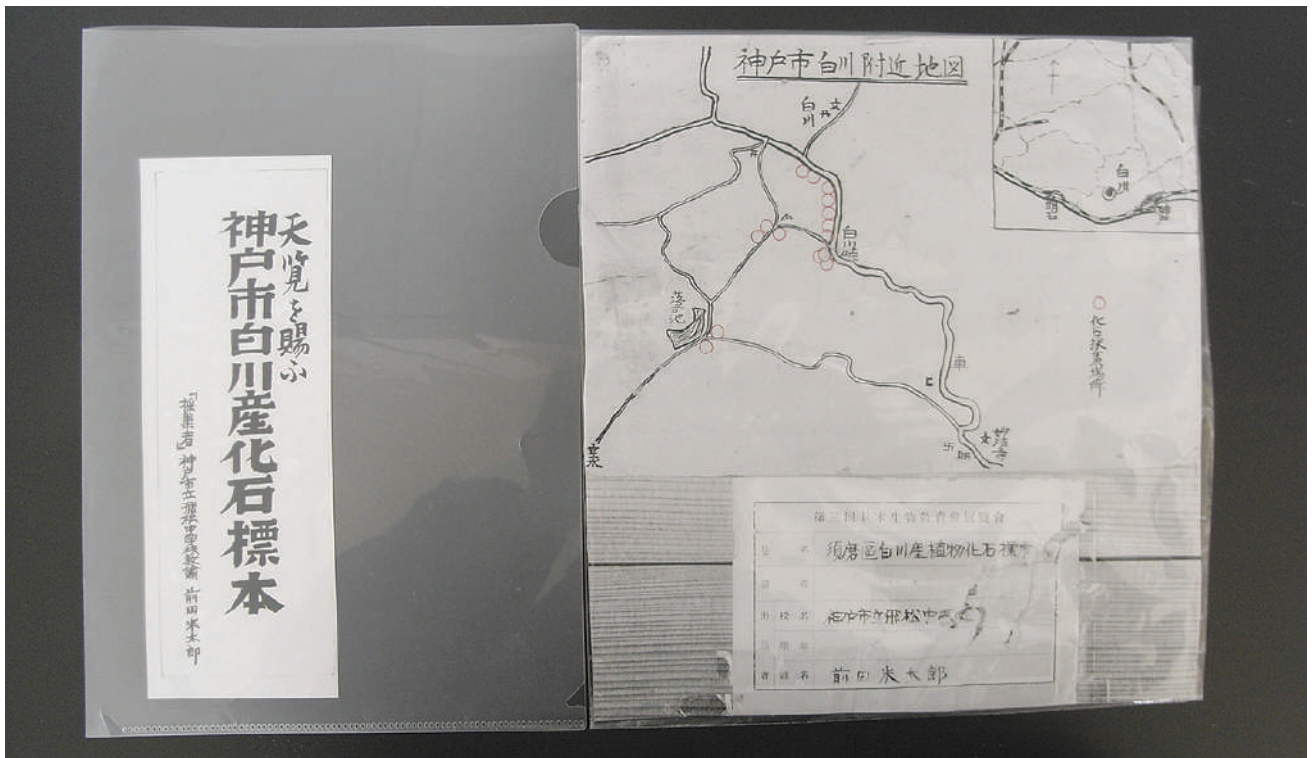 天覧を賜ふ
神戸市白川産化石標本
「採集者」神戸市立飛松中学校教諭 前田米太郎
神戸市白川附近地図
白川
文
白川
明石
神戸
白川峠
落合池
車
妙法寺
文
卍
○ 化石採集場所
第三回日本生物教育会展覧会
須磨区白川産植物化石標本
神戸市立飛松中
前田米太郎